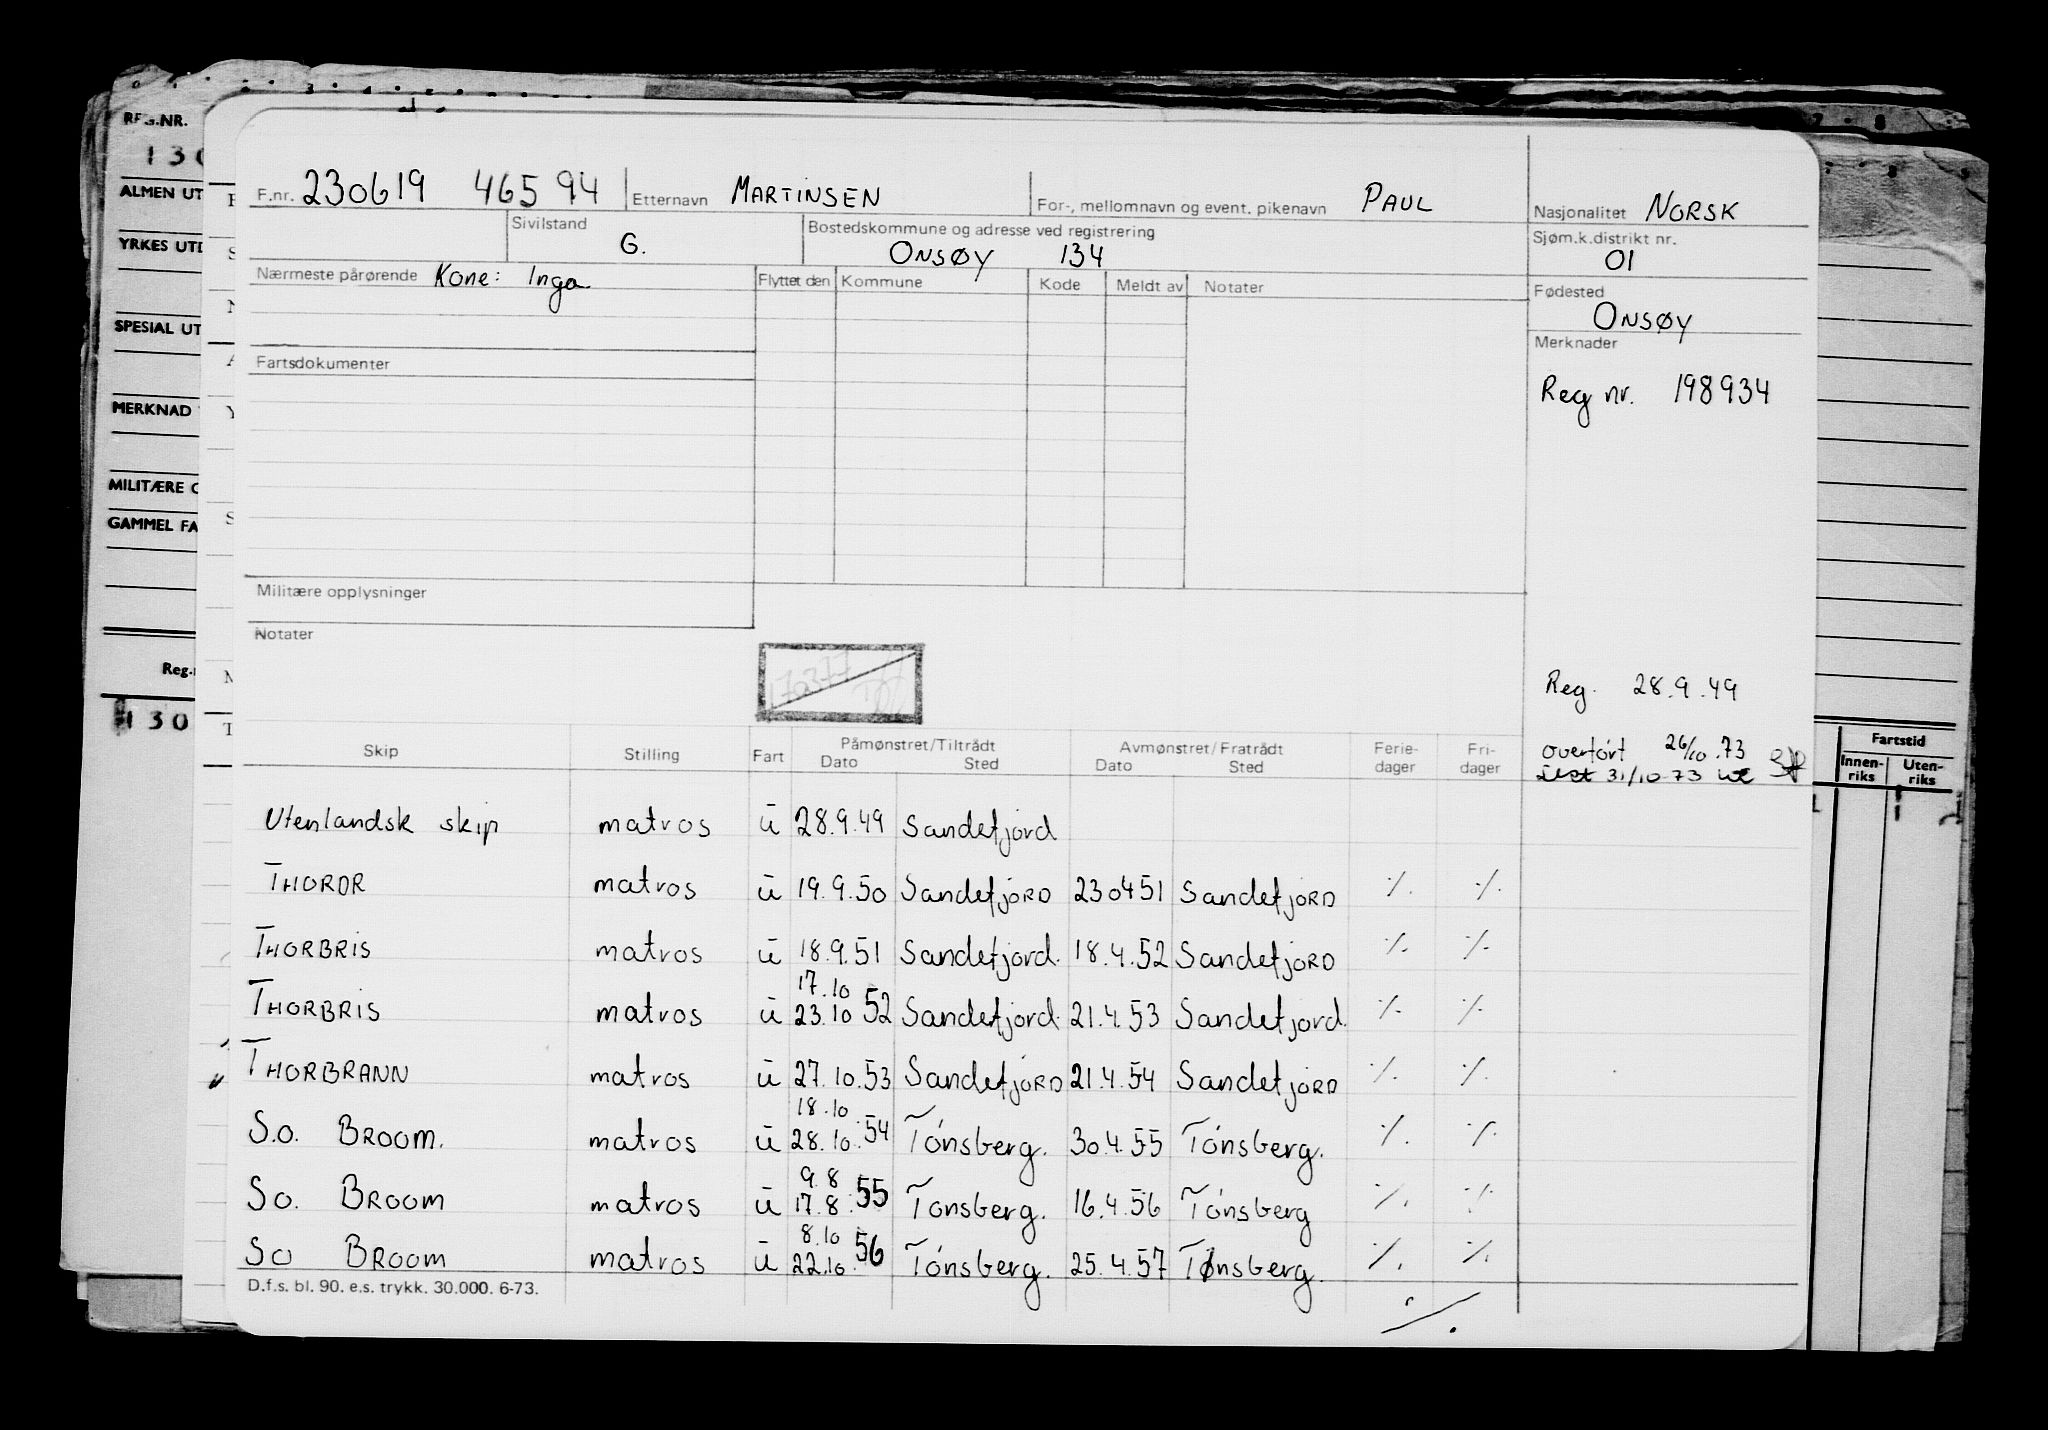 F.nr. 230619 46594 Etternavn MARTINSEN For-, mellomnavn og event. pikenavn PAUL Nasjonalitet NORSK
Sivilstand G. Bostedskommune og adresse ved registrering ONSØY 134 Sjøm.k.distrikt nr. 01
Nærmeste pårørende Kone: Inga Flyttet den Kommune Kode Meldt av Notater Fødested ONSØY
Fartsdokumenter
Merknader
Reg nr. 198934
Militære opplysninger
Notater
170377
Reg. 28.9.49
overført 26/10.73
31/10-73
Skip Stilling Fart Påmønstret/Tiltrådt Dato Sted Avmønstret/Fratrådt Dato Sted Ferie-dager Fri-dager
Utenlandsk skip matros u 28.9.49 Sandefjord
THORDR matros u 19.9.50 Sandefjord 230451 Sandefjord ./. ./.
THORBRIS matros u 18.9.51 Sandefjord. 18.4.52 Sandefjord ./. ./.
THORBRIS matros u 17.10 23.10 52 Sandefjord. 21.4.53 Sandefjord. ./. ./.
THORBRANN matros u 27.10.53 Sandefjord 21.4.54 Sandefjord ./. ./.
S.o. BROOM. matros u 18.10 28.10.54 Tønsberg. 30.4.55 Tønsberg. ./. ./.
So. BROOM matros u 9.8 17.8.55 Tønsberg. 16.4.56 Tønsberg ./. ./.
SO BROOM matros u 8.10 22.10.56 Tønsberg. 25.4.57 Tønsberg. ./. ./.
./.
D.f.s. bl. 90. e.s. trykk. 30.000. 6-73.
REG.NR.
130
ALMEN UT
YRKES UTD
SPESIAL UT
MERKNAD
MILITÆRE O
GAMMEL FA
Reg.
130
Fartstid
Innen-riks Uten-riks